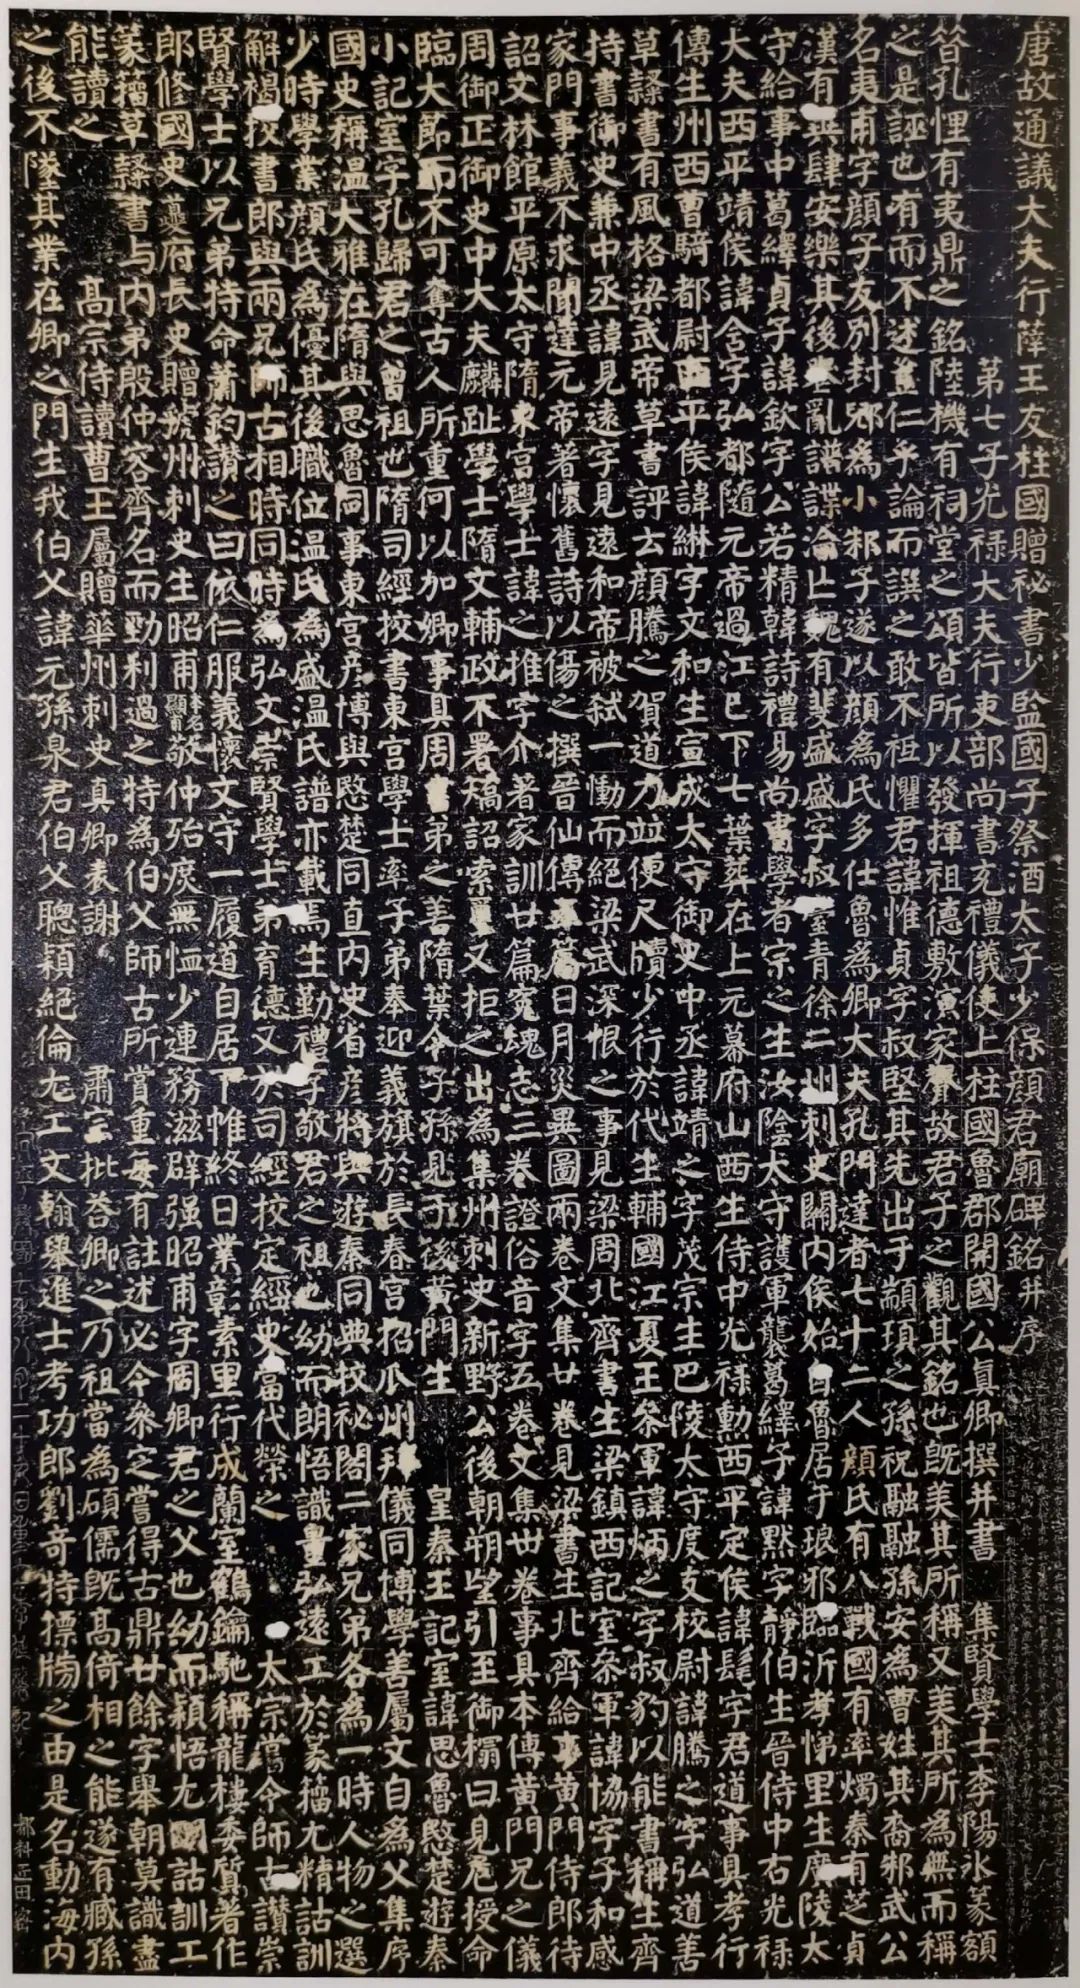 唐故通議大夫行薛王友柱國贈秘書少監國子祭酒太子少保顏君廟碑銘并序
第七子光禄大夫行吏部尚書充禮儀使上柱國魯郡開國公真卿撰并書 集賢學士李陽氷篆額
昝孔悝有夷鼎之銘陸機有祠堂之頌皆所以發揮祖德敷演家聲故君子之觀其銘也既美其所稱又美其所為無而稱
之是誣也有而不述豈仁乎論而譔之敢不祗懼君諱惟貞字叔堅其先出于顓頊之孫祝融融孫安為曹姓其裔邾武公
名夷甫字顏子友別封郳為小邾子遂以顏為氏多仕魯為卿大夫孔門達者七十二人顏氏有八戰國有率燭秦有芝貞
漢有異肆安樂其後喪亂譜諜淪亡魏有斐盛盛字叔臺青徐二州刺史關内侯始自魯居于琅邪臨沂孝悌里生廣陵太
守給事中葛繹貞子諱欽字公若精韓詩禮易尚書學者宗之生汝陰太守護軍襲葛繹子諱默字靜伯生晉侍中右光禄
大夫西平靖侯諱含字弘都隨元帝過江已下七葉葬在上元幕府山西生侍中光禄勳西平定侯諱髦字君道事具孝行
傳生州西曹騎都尉西平侯諱綝字文和生宣成太守御史中丞諱靖之字茂宗生巴陵太守度支校尉諱騰之字弘道善
草隸書有風格梁武帝草書評云顏騰之賀道力竝便尺牘少行於代生輔國江夏王叅軍諱炳之字叔豹以能書稱生齊
持書御史兼中丞諱見遠字見遠和帝被弒一慟而絕梁武深恨之事見梁周北齊書生梁鎮西記室叅軍諱協字子和感
家門事義不求聞達元帝著懷舊詩以傷之撰晉仙傳五篇日月災異圖兩卷文集廿卷見梁書生北齊給事黃門侍郎待
詔文林館平原太守隋東宮學士諱之推字介著家訓廿篇寃魂志三卷證俗音字五卷文集卅卷事具本傳黃門兄之儀
周御正御史中大夫麟趾學士隋文輔政不署矯詔索璽又拒之出為集州刺史新野公後朝朔望引至御榻曰見危授命
臨大節而不可奪古人所重何以加卿事具周書弟之善隋葉令子孫見于後黃門生 皇秦王記室諱思魯愍楚遊秦
小記室字孔歸君之曾祖也隋司經挍書東宮學士率子弟奉迎義旗於長春宮招瓜州拜儀同博學善屬文自為父集序
國史稱温大雅在隋與思魯同事東宮彥博與愍楚同直内史省彥將與遊秦同典校秘閣二家兄弟各為一時人物之選
少時學業顏氏為優其後職位温氏為盛温氏譜亦載焉生勤禮字敬君之祖也幼而朗悟識量弘遠工於篆籀尤精詁訓
解褐挍書郎與兩兄師古相時同時為弘文崇賢學士弟育德又於司經校定經史當代榮之 太宗嘗令師古讚崇
賢學士以兄弟特命蕭鈞讚之曰依仁服義懷文守一履道自居下帷終日業彰素里行成蘭室鶴鑰馳稱龍樓委質著作
郎修國史夔府長史贈虢州刺史生昭甫本名顯甫敬仲殆庶無恤少連務滋辟强昭甫字周卿君之父也幼而穎悟尤明詁訓工
篆籀草隸書与内弟殷仲容齊名而勁利過之特為伯父師古所賞重每有註述必令叅定嘗得古鼎廿餘字舉朝莫識盡
能讀之 髙宗侍讀曹王屬贈華州刺史真卿表謝 肅宗批荅卿之乃祖當為碩儒既髙倚相之能遂有臧孫
之後不墜其業在卿之門生我伯父諱元孫泉君伯父聰穎絕倫尤工文翰舉進士考功郎劉奇特摽牓之由是名動海内